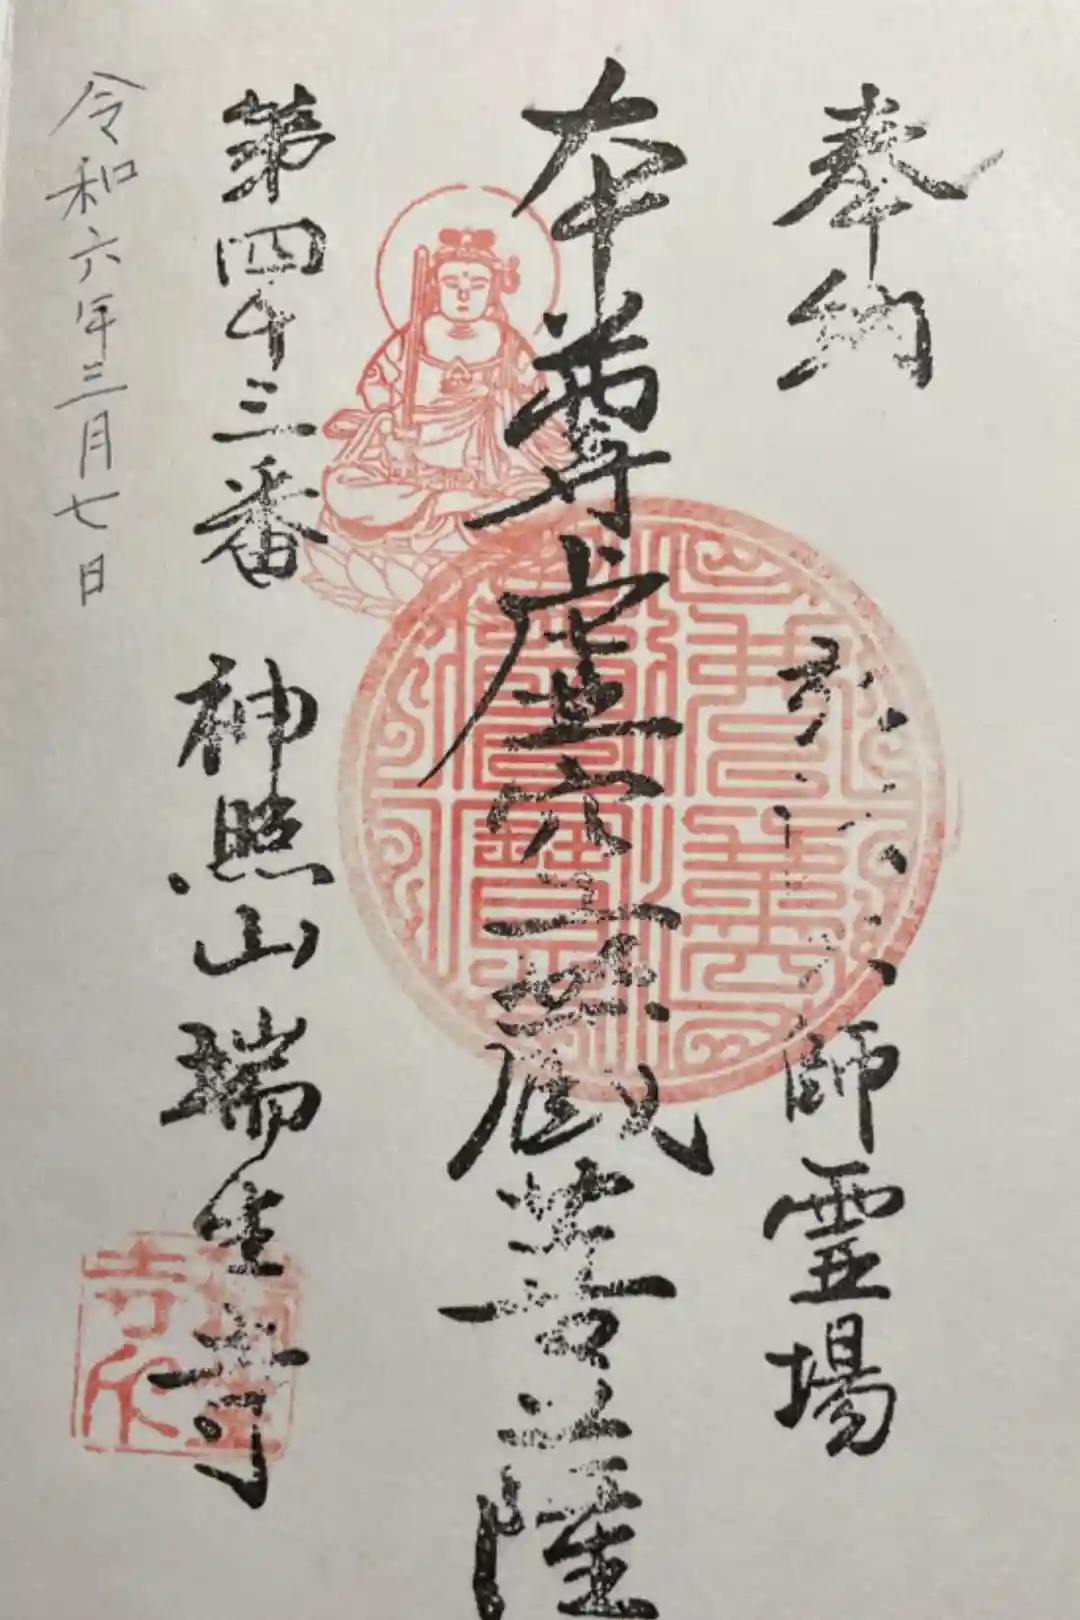 奉納
師霊場
本尊虚空蔵菩薩
第四十三番 神照山瑞生寺
令和六年三月七日